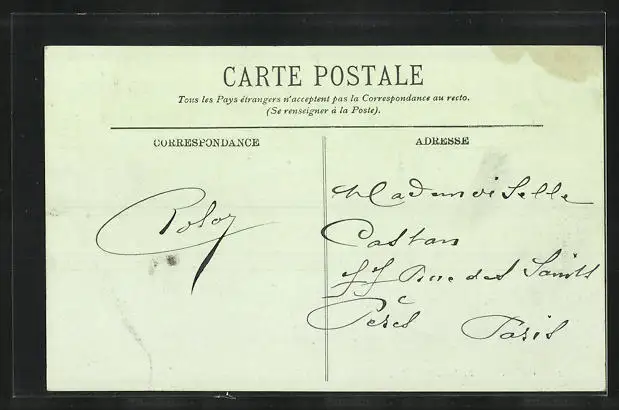 CARTE POSTALE
Tous les Pays étrangers n'acceptent pas la Correspondance au recto.
(Se renseigner à la Poste).
CORRESPONDANCE
ADRESSE
Mademoiselle
Castan
Rue des Saints
Pères Paris